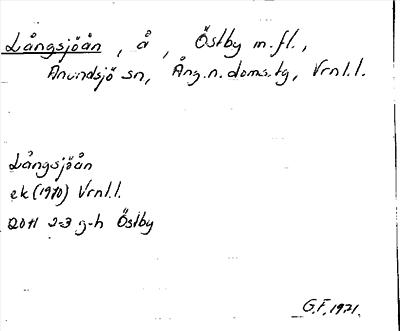 Långsjöån, å, Östby m.fl.,
Anundsjö sn, Ång.n.doms.tg, Vrnl.l.
Långsjöån
ek (1970) Vrnl.l.
20H 2-3 g-h Östby
G.F. 1971.